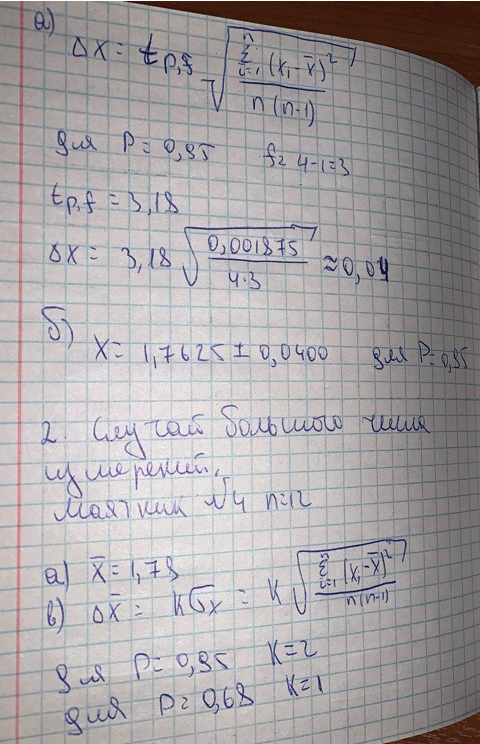 а)
Δx = t_{p,f} √(Σ_{i=1}^{n} (x_i - x̄)² / n(n-1))
для P = 0,95 f = 4-1=3
t_{p,f} = 3,18
Δx = 3,18 √(0,001875 / 4·3) ≈ 0,04
б)
X = 1,7625 ± 0,0400 для P=0,95
2. Случай большого числа
измерений.
Маятник №4 n=12
а) x̄ = 1,78
в) Δx̄ = Kσ_x = K √(Σ_{i=1}^{n} (x_i - x̄)² / n(n-1))
для P = 0,95 K=2
для P = 0,68 K=1